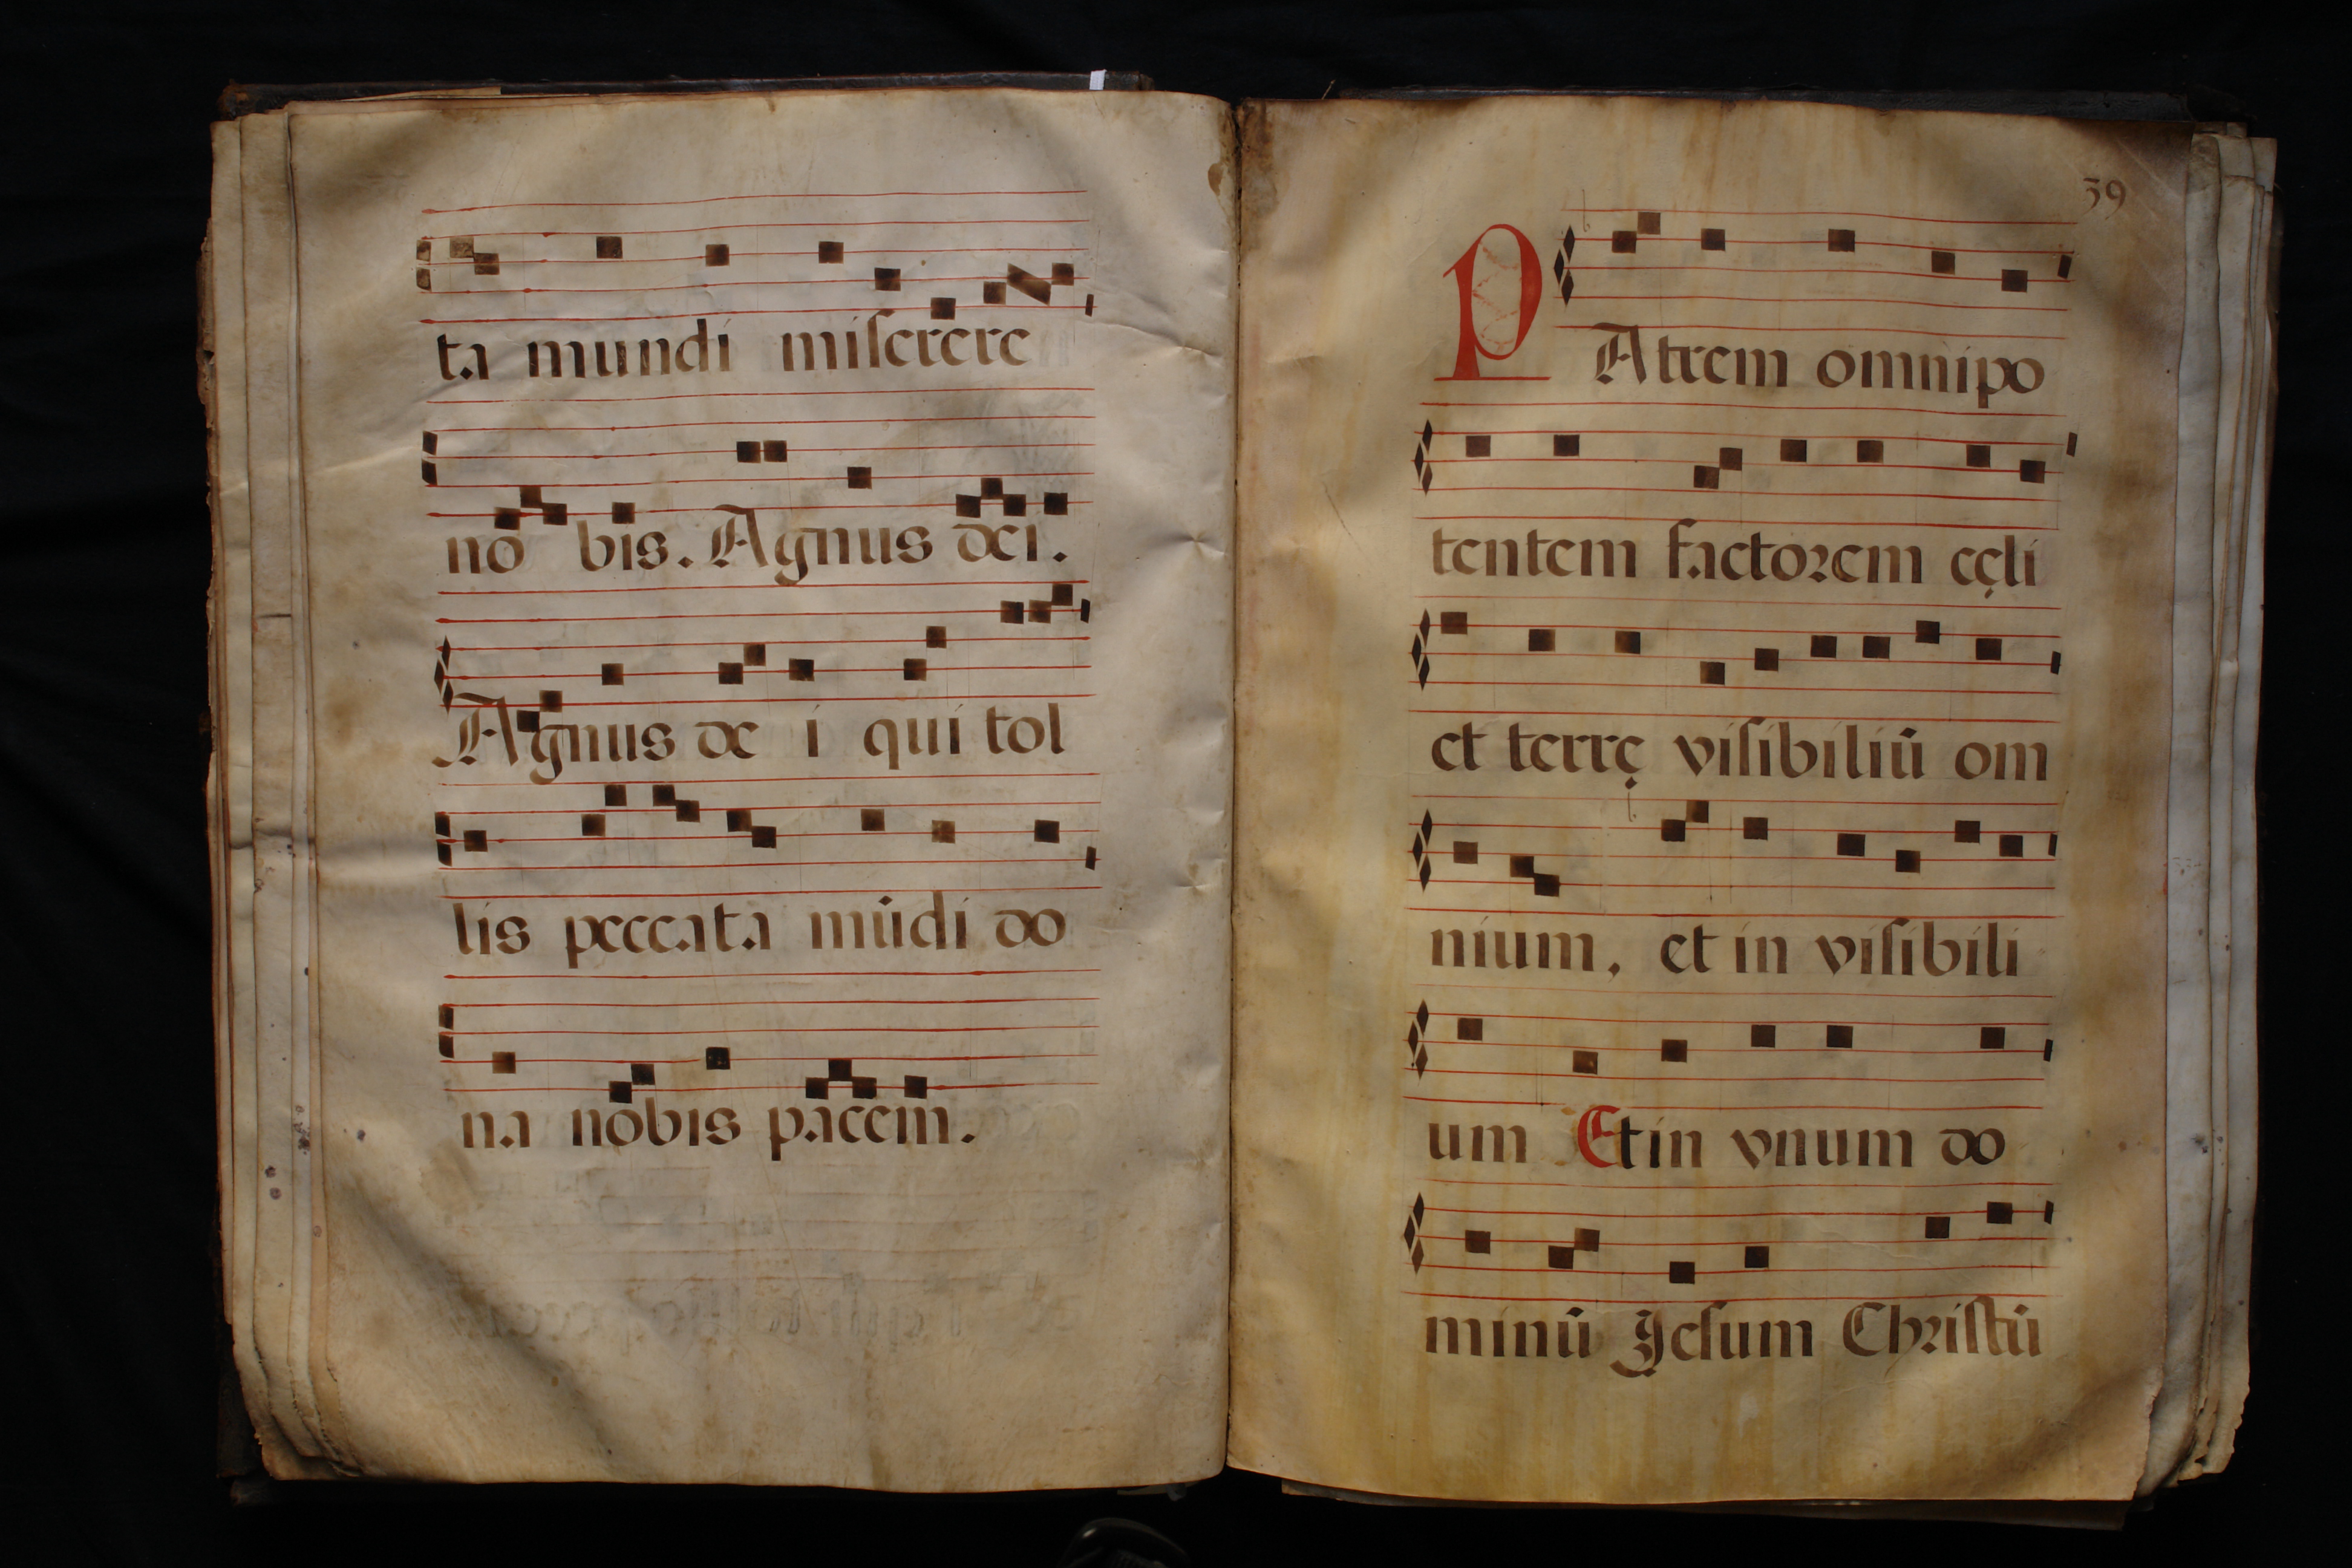 ta mundi miſerere
no bis. Agnus dei.
Agnus de i qui tol
lis peccata mūdi do
na nobis pacem.
59
PAtrem omnipo
tentem factoꝛem cęli
et terrę viſibiliū om
nium, et in viſibili
um Et in vnum do
minū Jeſum Chꝛiſtū